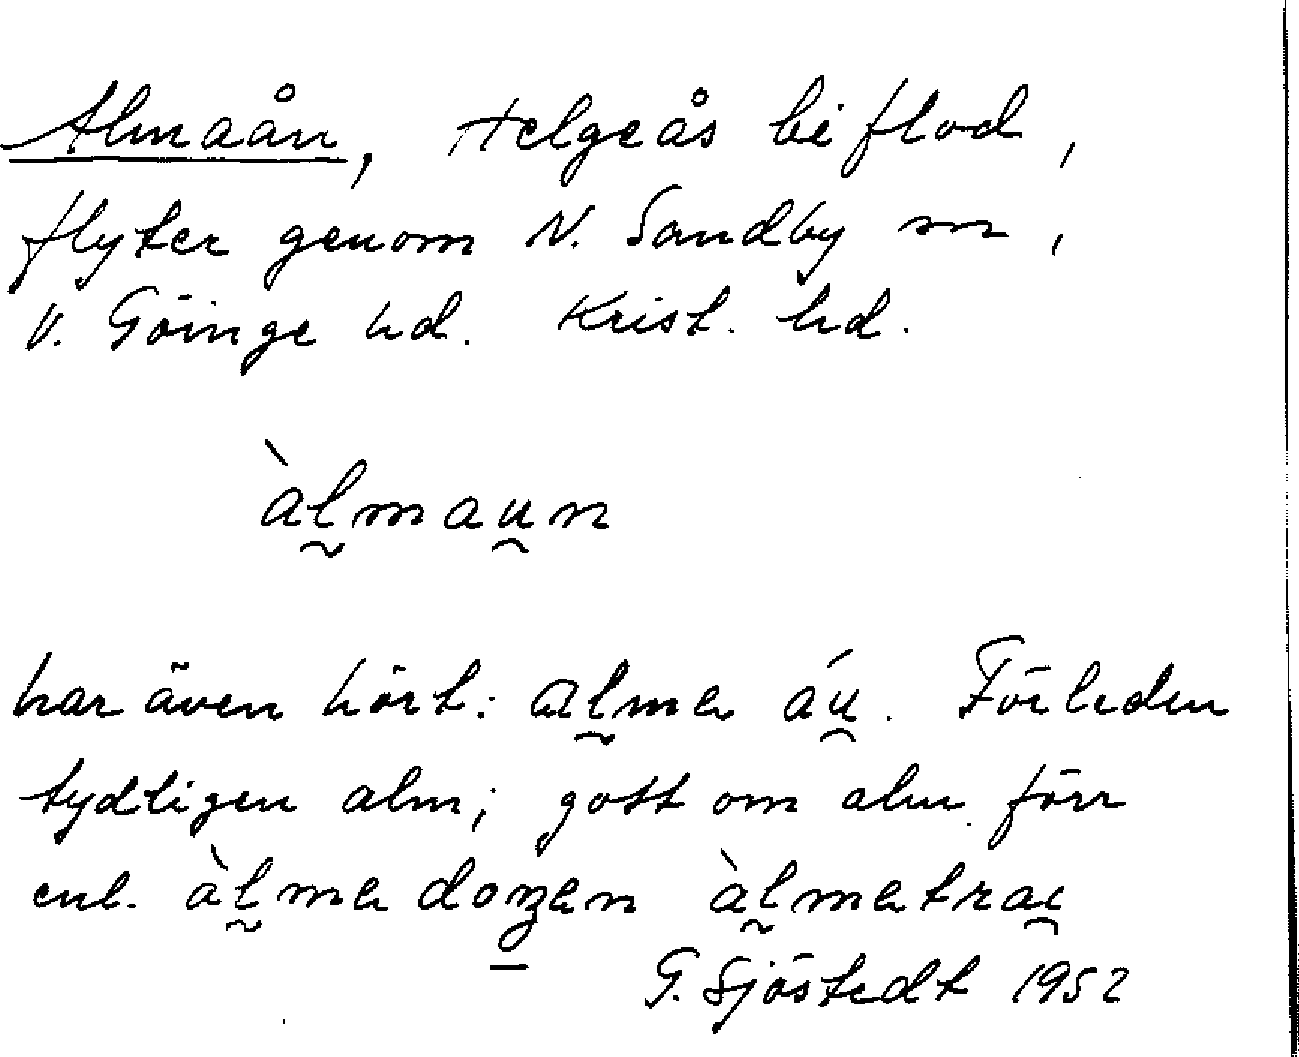 Almaån, Helgeås biflod,
flyter genom N. Sandby sn,
V. Göinge hd. Krist. ld.
àl̰mau̯n
har även hört: al̰mə áu̯. Förleden
tydligen alm; gott om alm förr
enl. àl̰mə doŋən àl̰mətrai̯
G. Sjöstedt 1952